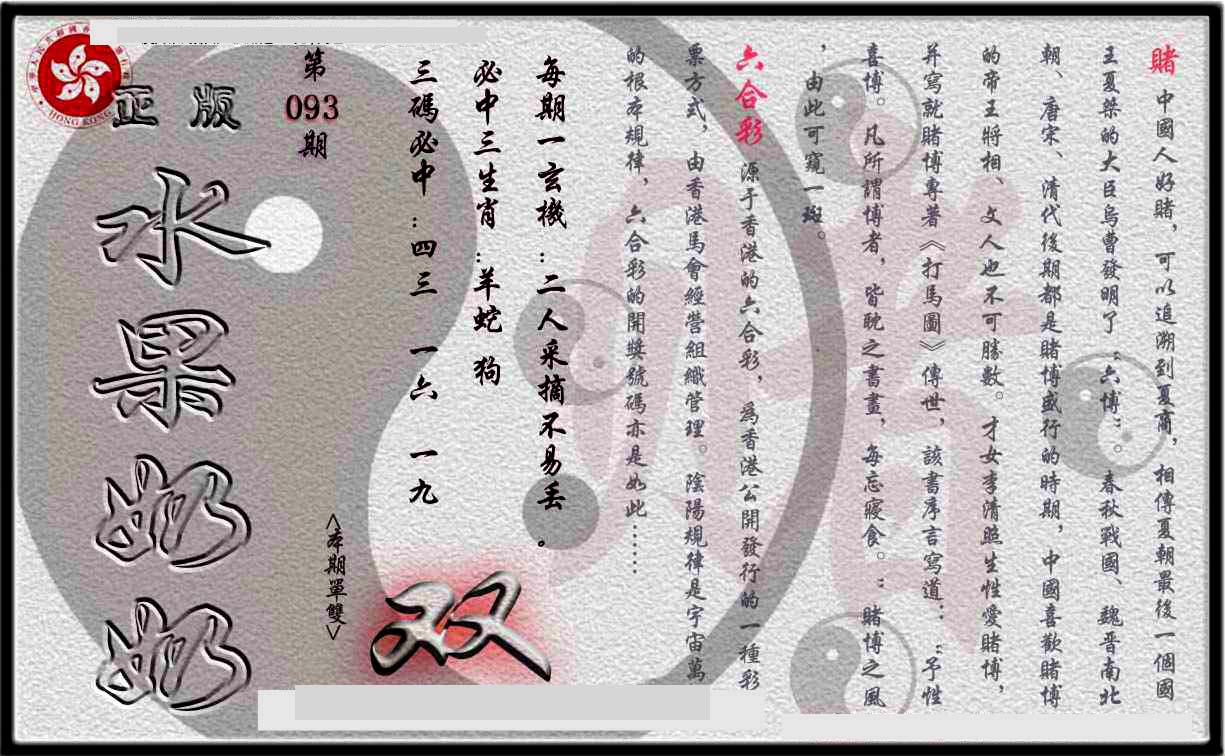 賭 中國人好賭，可以追溯到夏商，相傳夏朝最後一個國
王夏桀的大臣烏曹發明了“六博”。春秋戰國、魏晋南北
朝、唐宋、清代後期都是賭博盛行的時期，中國喜歡賭博
的帝王將相、文人也不可勝數。才女李清照生性愛賭博，
并寫就賭博專著《打馬圖》傳世，該書序言寫道：“予性
喜博。凡所謂博者，皆耽之書畫，每忘寢食。”賭博之風
，由此可窺一斑。
六合彩 源于香港的六合彩，為香港公開發行的一種彩
票方式，由香港馬會經營組織管理。陰陽規律是宇宙萬
的根本規律，六合彩的開獎號碼亦是如此……
每期一玄機：二人采摘不易丢。
必中三生肖：羊蛇 狗
三碼必中：四三 一六 一九
第
093
期
<本期單雙>
双
正版
水果奶奶
HONG KONG